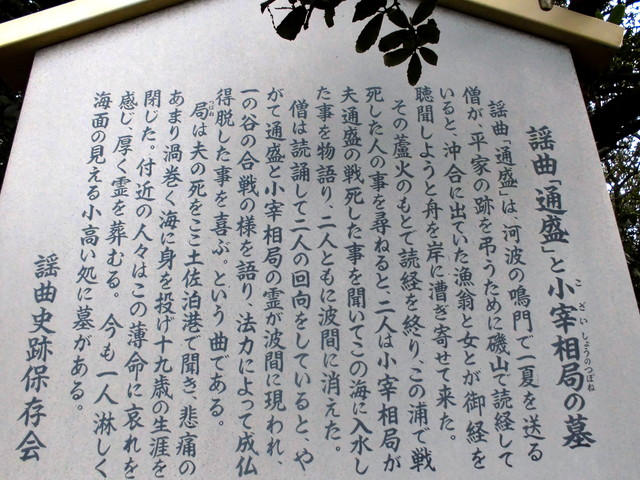 謡曲「通盛」と小宰相局の墓
こざいしょうのつぼね
謡曲「通盛」は、河波の鳴門で一夏を送る
僧が、平家の跡を弔うために磯山で読経して
いると、沖合に出ていた漁翁と女とが御経を
聴聞しようと舟を岸に漕ぎ寄せて来た。
その蘆火のもとで読経を終り、この浦で戦
死した人の事を尋ねると、二人は小宰相局が
夫通盛の戦死した事を聞いてこの海に入水し
た事を物語り、二人ともに波間に消えた。
僧は読誦して二人の回向をしていると、や
がて通盛と小宰相局の霊が波間に現われ、
一の谷の合戦の様を語り、法力によって成仏
得脱した事を喜ぶ。という曲である。
局は夫の死をここ土佐泊港で聞き、悲痛の
つぼね
あまり渦巻く海に身を投げ十九歳の生涯を
閉じた。付近の人々はこの薄命に哀れを
感じ、厚く霊を葬むる。今も一人淋しく
海面の見える小高い処に墓がある。
謡曲史跡保存会